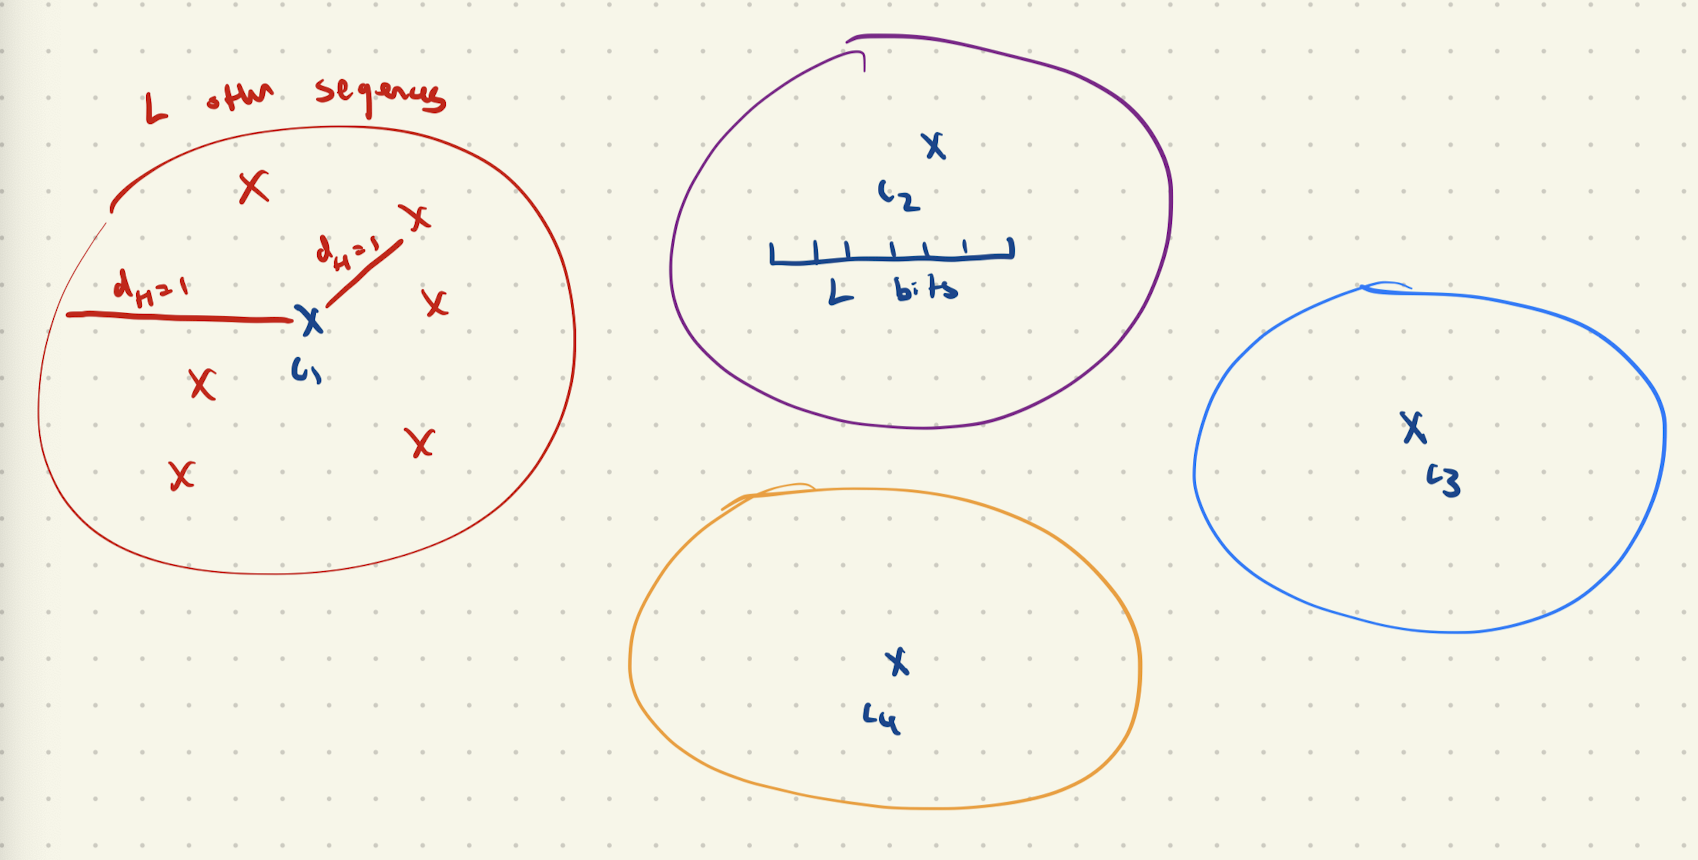 L other sequences
X
X
d_H=1
d_H=1
X
X
C1
X
X
X
X
C2
L bits
X
C3
X
C4